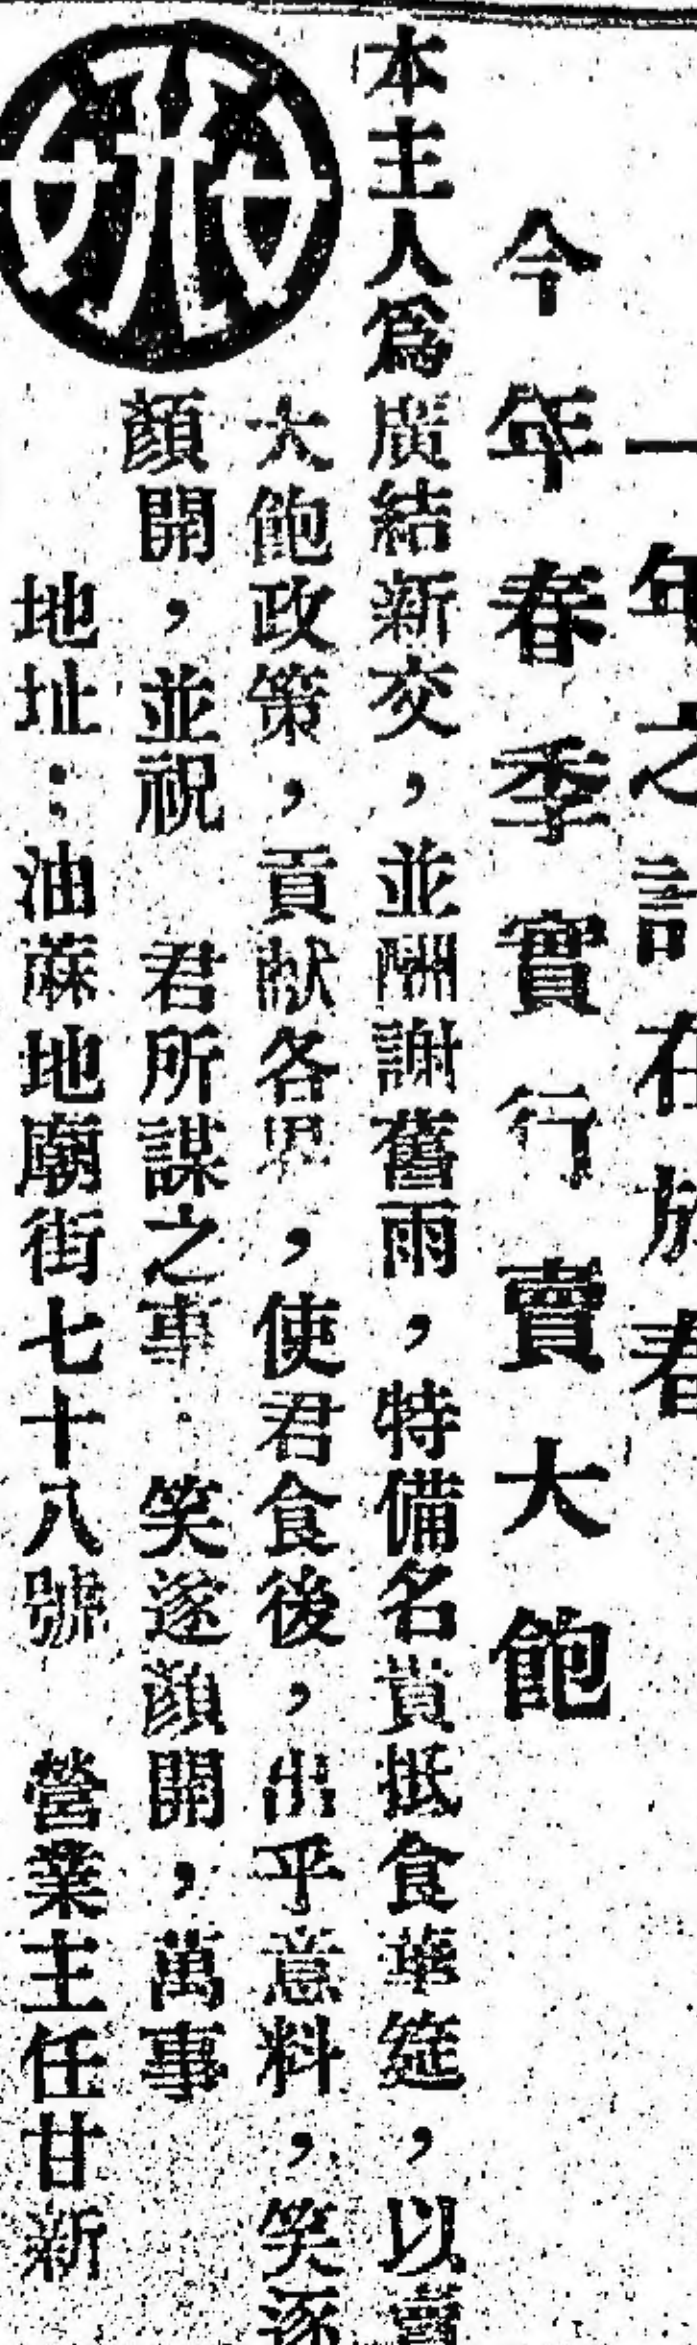 一年之計在於春
今年春季實行賣大飽
本主人爲廣結新交，並酬謝舊雨，特備名貢抵食華筵，以賣
大飽政策，貢献各界，使君食後，出乎意料，笑逐
顏開，並祝　君所謀之事　笑遂顏開，萬事
地址：油蔴地廟街七十八號　營業主任甘新